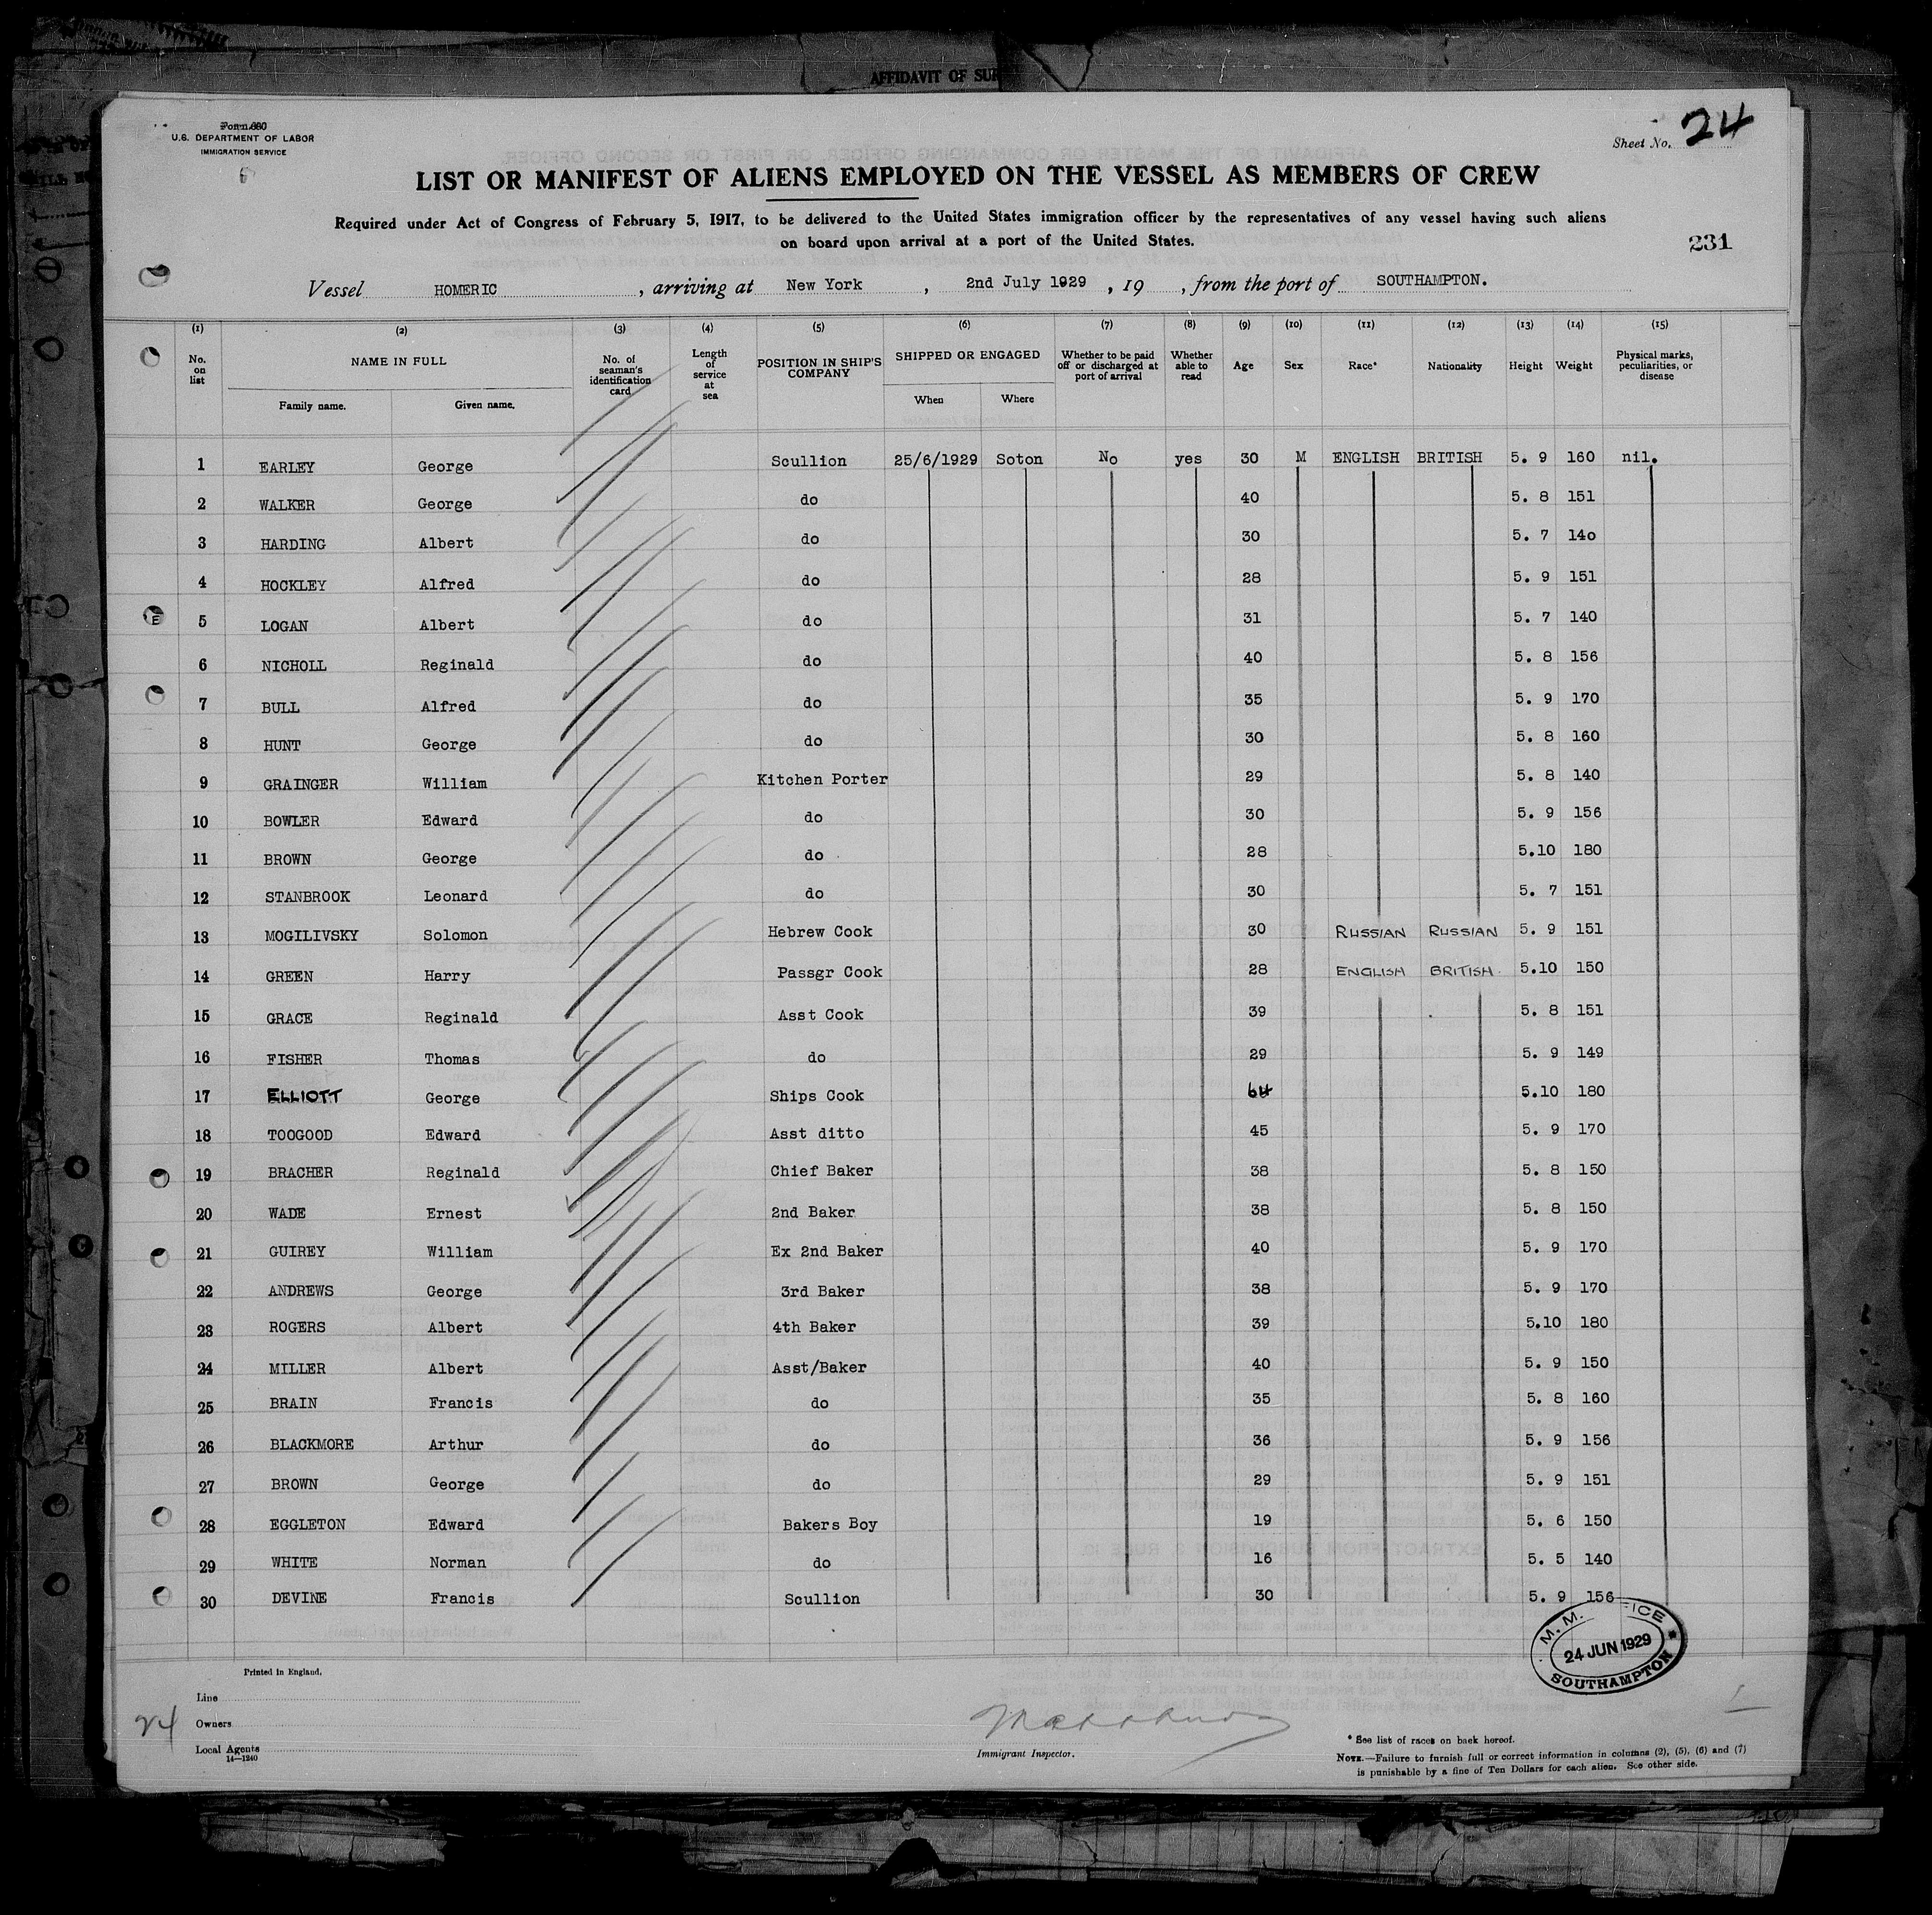 AFFIDAVIT OF SUR
Form 680
U.S. DEPARTMENT OF LABOR
IMMIGRATION SERVICE
Sheet No. 24
LIST OR MANIFEST OF ALIENS EMPLOYED ON THE VESSEL AS MEMBERS OF CREW
Required under Act of Congress of February 5, 1917, to be delivered to the United States immigration officer by the representatives of any vessel having such aliens
on board upon arrival at a port of the United States.
231
Vessel HOMERIC, arriving at New York, 2nd July 1929, 19, from the port of SOUTHAMPTON.
(1) (2) (3) (4) (5) (6) (7) (8) (9) (10) (11) (12) (13) (14) (15)
No. on list NAME IN FULL No. of seaman's identification card Length of service at sea POSITION IN SHIP'S COMPANY SHIPPED OR ENGAGED Whether to be paid off or discharged at port of arrival Whether able to read Age Sex Race* Nationality Height Weight Physical marks, peculiarities, or disease
Family name. Given name. When Where
1 EARLEY George Scullion 25/6/1929 Soton No yes 30 M ENGLISH BRITISH 5. 9 160 nil.
2 WALKER George do 40 5. 8 151
3 HARDING Albert do 30 5. 7 14o
4 HOCKLEY Alfred do 28 5. 9 151
5 LOGAN Albert do 31 5. 7 140
6 NICHOLL Reginald do 40 5. 8 156
7 BULL Alfred do 35 5. 9 170
8 HUNT George do 30 5. 8 160
9 GRAINGER William Kitchen Porter 29 5. 8 140
10 BOWLER Edward do 30 5. 9 156
11 BROWN George do 28 5.10 180
12 STANBROOK Leonard do 30 5. 7 151
13 MOGILIVSKY Solomon Hebrew Cook 30 RUSSIAN RUSSIAN 5. 9 151
14 GREEN Harry Passgr Cook 28 ENGLISH BRITISH. 5.10 150
15 GRACE Reginald Asst Cook 39 5. 8 151
16 FISHER Thomas do 29 5. 9 149
17 ELLIOTT George Ships Cook 64 5.10 180
18 TOOGOOD Edward Asst ditto 45 5. 9 170
19 BRACHER Reginald Chief Baker 38 5. 8 150
20 WADE Ernest 2nd Baker 38 5. 8 150
21 GUIREY William Ex 2nd Baker 40 5. 9 170
22 ANDREWS George 3rd Baker 38 5. 9 170
23 ROGERS Albert 4th Baker 39 5.10 180
24 MILLER Albert Asst/Baker 40 5. 9 150
25 BRAIN Francis do 35 5. 8 160
26 BLACKMORE Arthur do 36 5. 9 156
27 BROWN George do 29 5. 9 151
28 EGGLETON Edward Bakers Boy 19 5. 6 150
29 WHITE Norman do 16 5. 5 140
30 DEVINE Francis Scullion 30 5. 9 156
M. M. OFFICE
24 JUN 1929
SOUTHAMPTON
Printed in England.
Line
24 Owners
Local Agents
14—1240
Immigrant Inspector.
* See list of races on back hereof.
NOTE.—Failure to furnish full or correct information in columns (2), (5), (6) and (7)
is punishable by a fine of Ten Dollars for each alien. See other side.